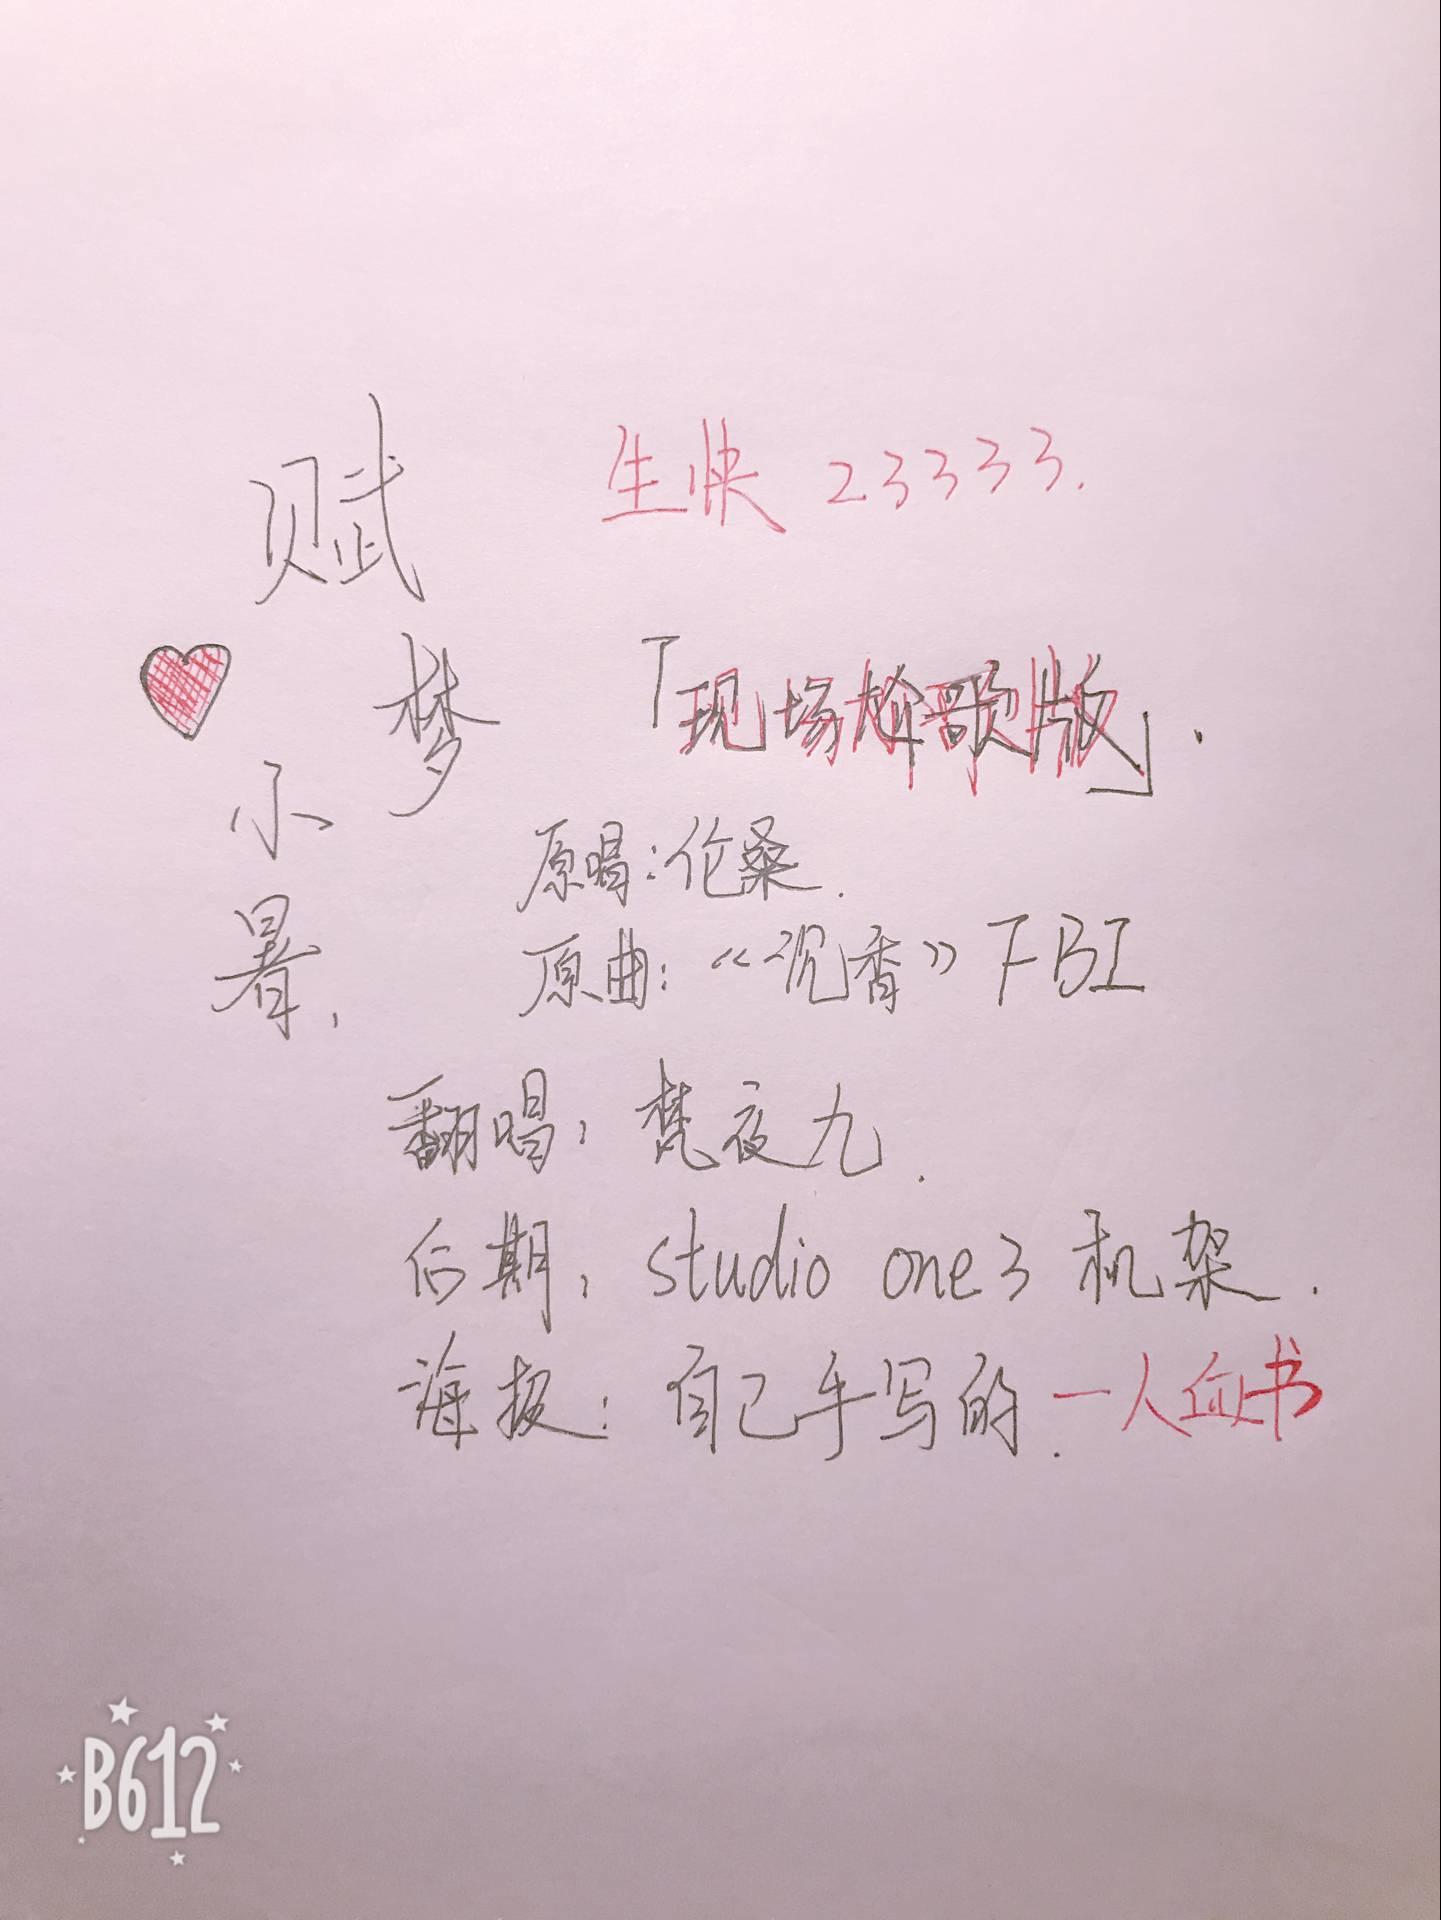 赋梦
生快 23333.
小暑,
「现场尬歌版」.
原唱:伦桑.
原曲:《沉香》FBI
翻唱:梵夜九.
后期:studio one3 机架.
海报:自己手写的.一人血书
B612